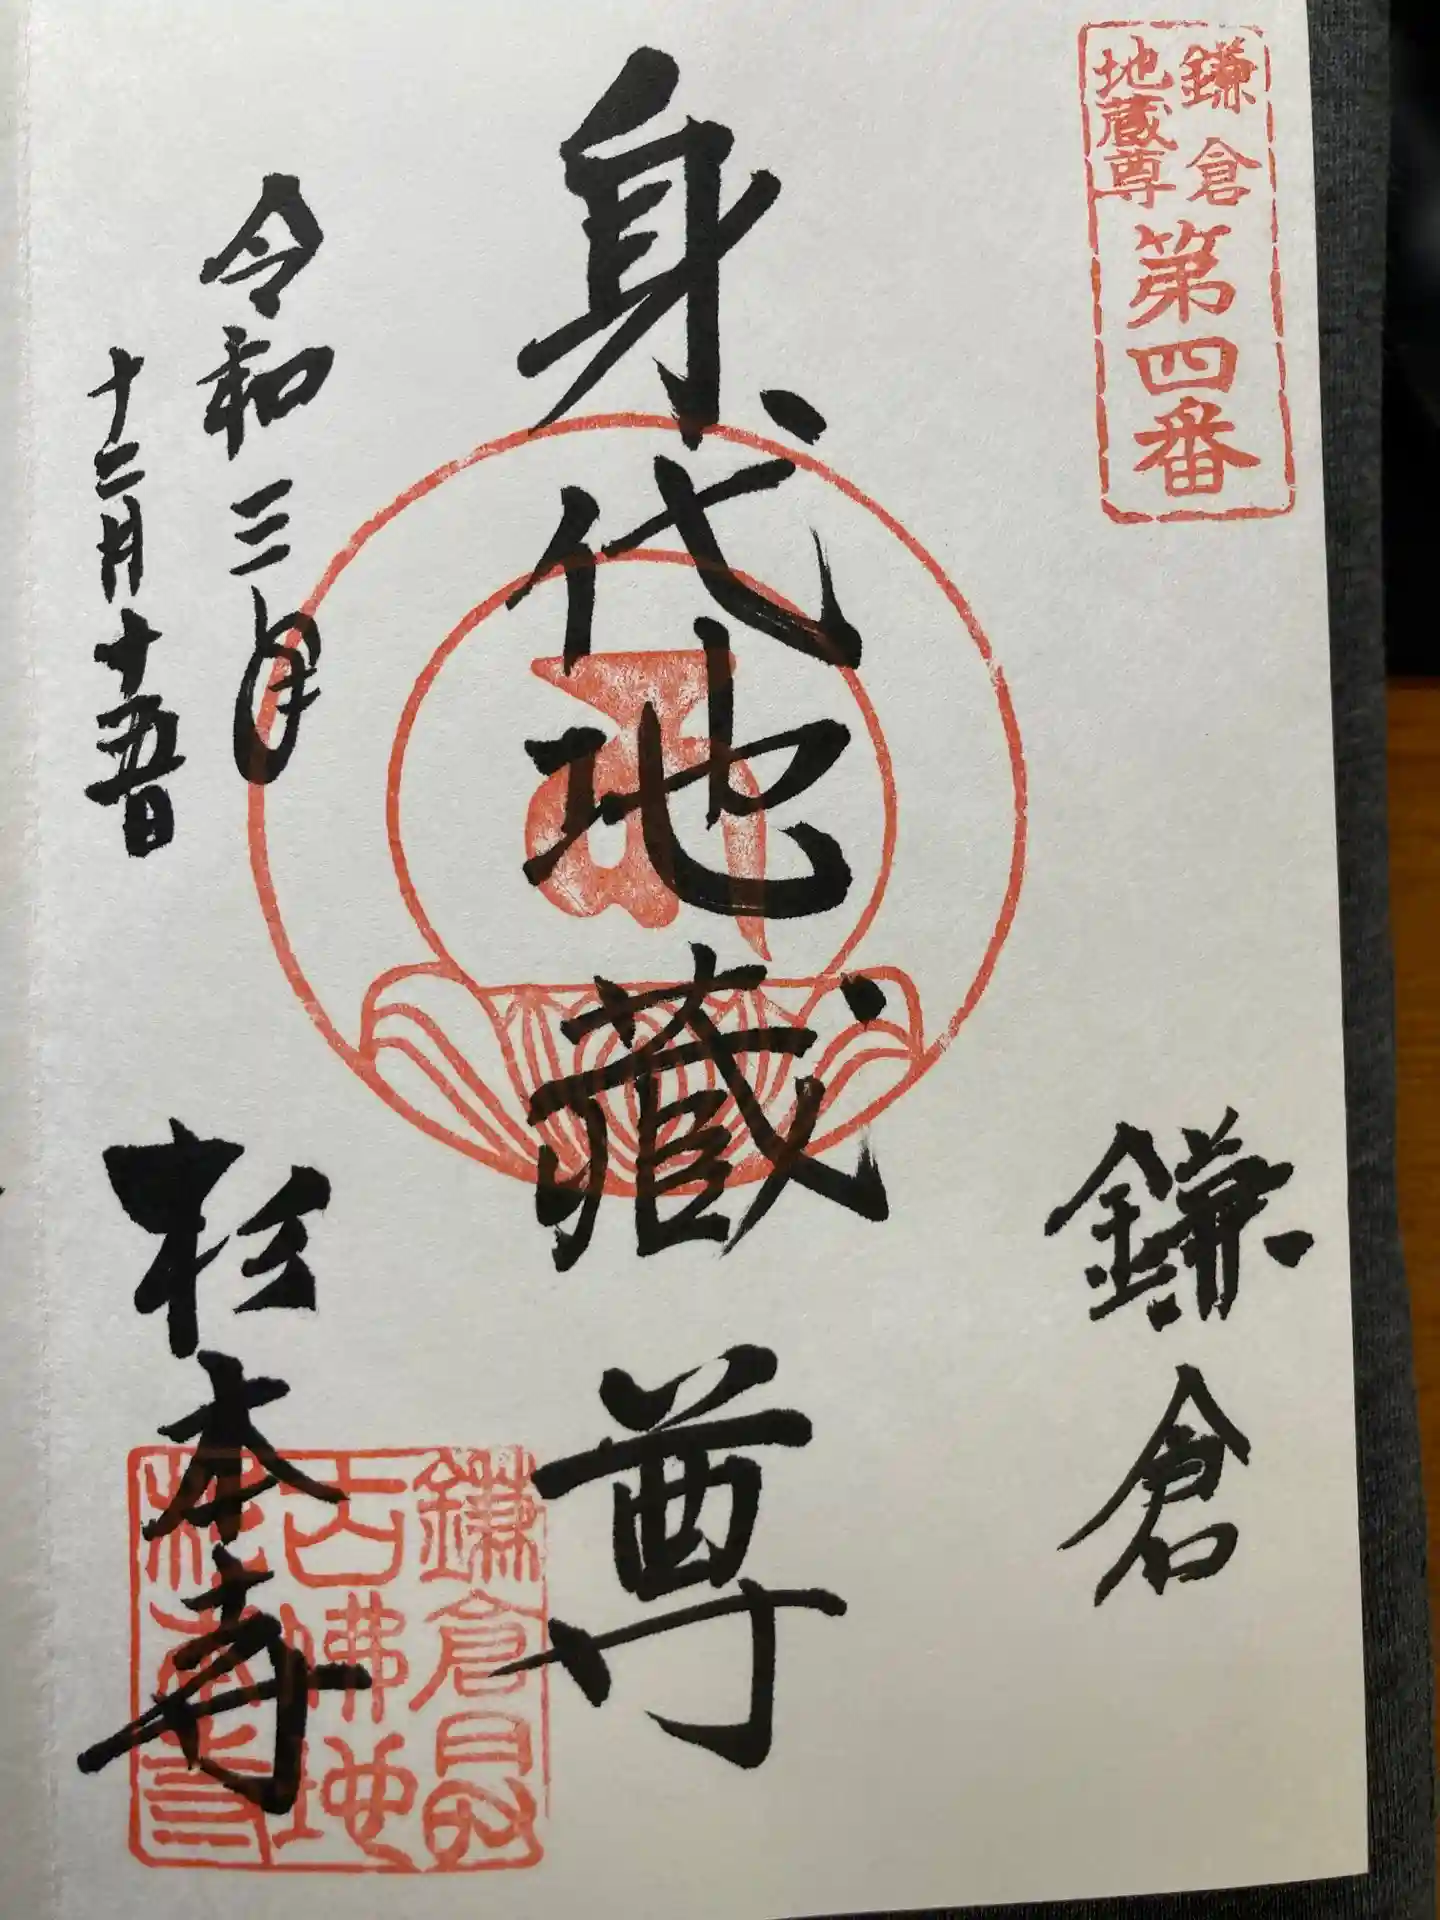 鎌倉
地蔵尊
第四番
鎌倉
身代地蔵尊
令和三年
十二月十五日
杉本寺
鎌倉最
古佛地
杉本寺